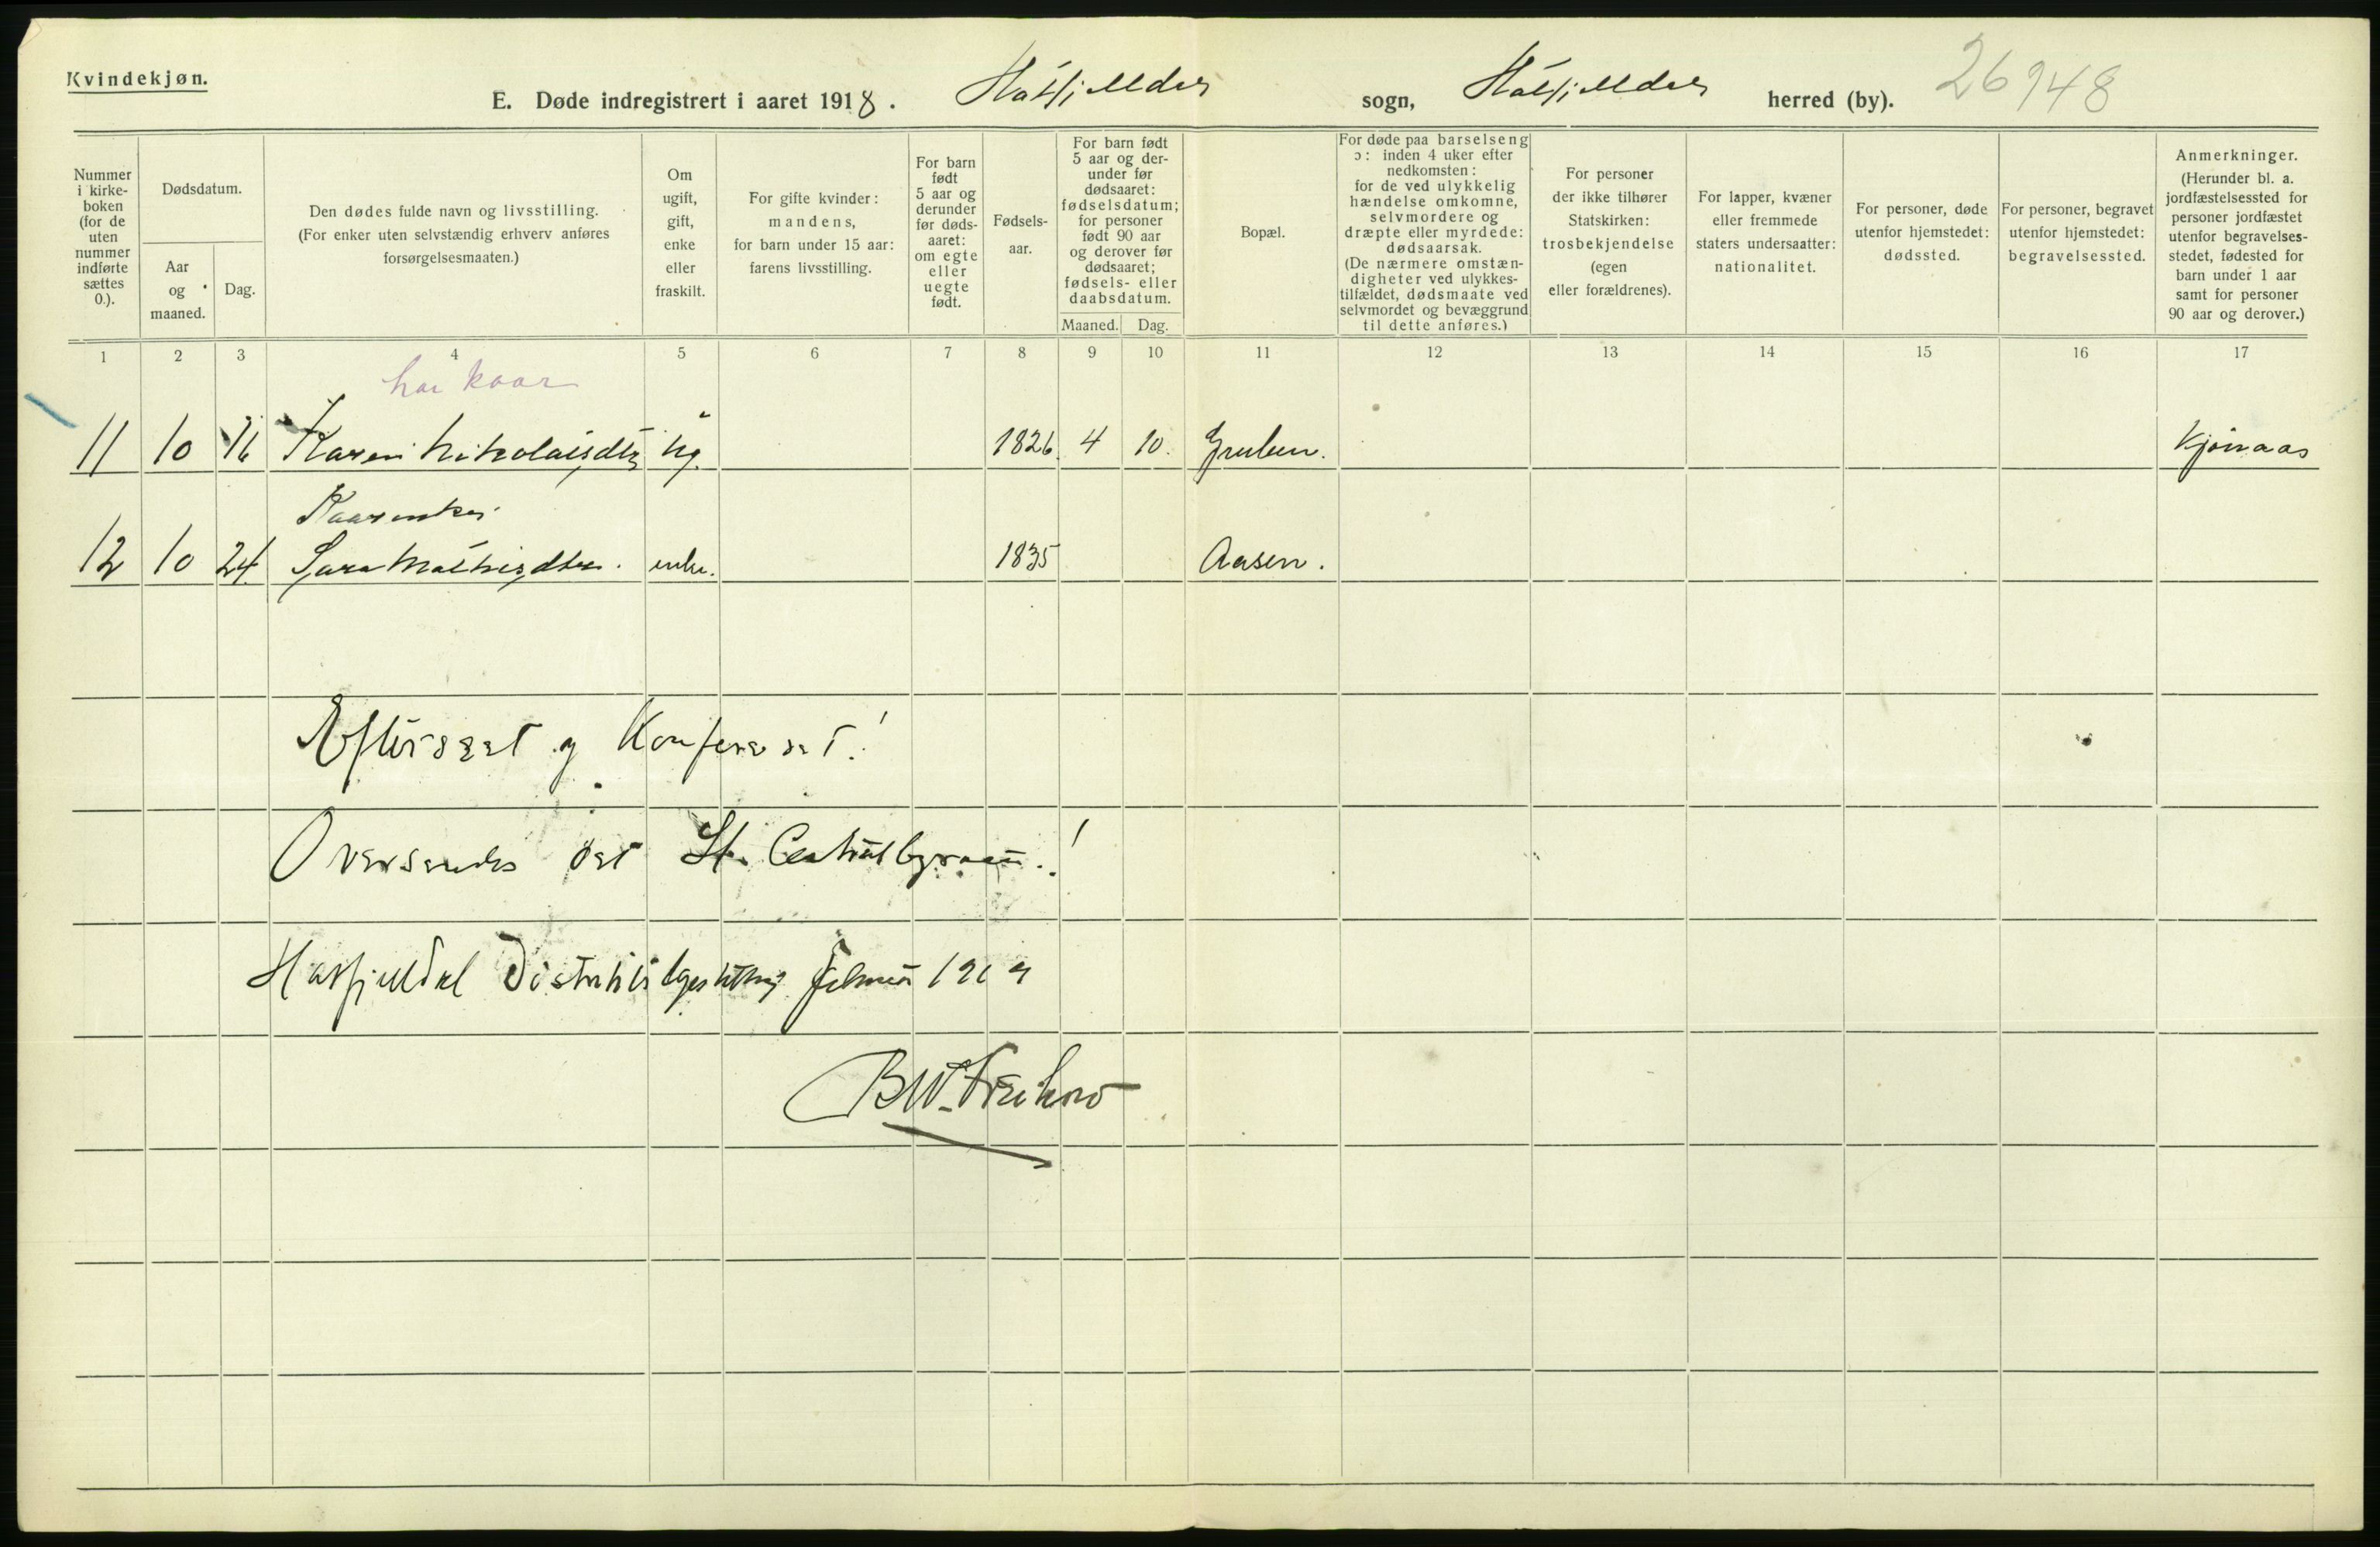 Kvindekjøn.
E. Døde indregistrert i aaret 1918. Hatfjelldal sogn, Hatfjelldal herred (by). 26948
Nummer i kirke- boken (for de uten nummer indførte sættes 0.).
Dødsdatum.
Aar og maaned.
Dag.
Den dødes fulde navn og livsstilling.
(For enker uten selvstændig erhverv anføres
forsørgelsesmaaten.)
Om ugift, gift, enke eller fraskilt.
For gifte kvinder:
mandens,
for barn under 15 aar:
farens livsstilling.
For barn født 5 aar og derunder før døds- aaret: om egte eller uegte født.
Fødsels- aar.
For barn født 5 aar og der- under før dødsaaret: fødselsdatum; for personer født 90 aar og derover før dødsaaret; fødsels- eller daabsdatum.
Maaned.
Dag.
Bopæl.
For døde paa barselseng
ɔ: inden 4 uker efter
nedkomsten:
for de ved ulykkelig
hændelse omkomne,
selvmordere og
dræpte eller myrdede:
dødsaarsak.
(De nærmere omstæn-
digheter ved ulykkes-
tilfældet, dødsmaate ved
selvmordet og bevæggrund
til dette anføres.)
For personer
der ikke tilhører
Statskirken:
trosbekjendelse
(egen
eller forældrenes).
For lapper, kvæner
eller fremmede
staters undersaatter:
nationalitet.
For personer, døde
utenfor hjemstedet:
dødssted.
For personer, begravet
utenfor hjemstedet:
begravelsessted.
Anmerkninger.
(Herunder bl. a.
jordfæstelsessted for
personer jordfæstet
utenfor begravelses-
stedet, fødested for
barn under 1 aar
samt for personer
90 aar og derover.)
1 2 3 4 5 6 7 8 9 10 11 12 13 14 15 16 17
har kaar
11 10 16 Karen Nikolaisdtr ug. 1826 4 10. Gruben. Kjønaas
Kaarenke
12 10 24. Sara Mathisdtr. enke. 1835 Aasen.
Efterseet og Konfereret!
Oversendes det St. Centralbyraa.!
Hatfjelldal Februar 1919